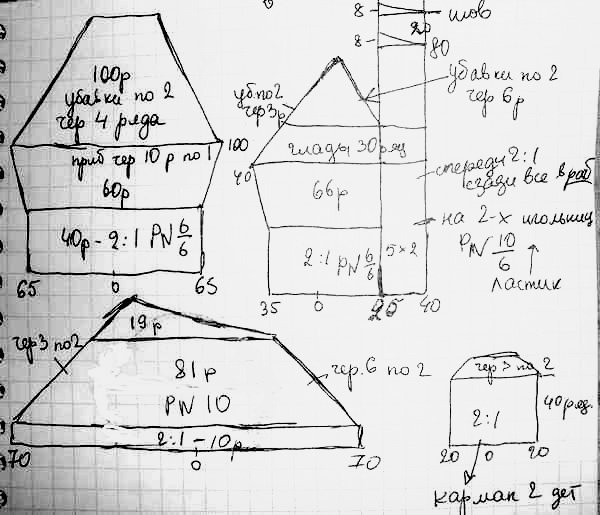 100р
убавки по 2
чер 4 ряда
приб чер 10 р по 1
100
60р
40р - 2:1 PN 6/6
65 0 65
8 - шов
20
8 - 80
уб.по 2
чер 3р
убавки по 2
чер 6р
гладь 30 ряд
40
66р
спереди 2:1
сзади все в раб
на 2-х игольниц
PN 10/6
ластик
2:1 PN 6/6
5×2
35 0 25 40
19 р
чер 3 по 2
81р
PN 10
чер. 6 по 2
2:1 - 10р
70 0 70
чер 3 по 2
2:1
40 ряд.
20 0 20
карман 2 дет